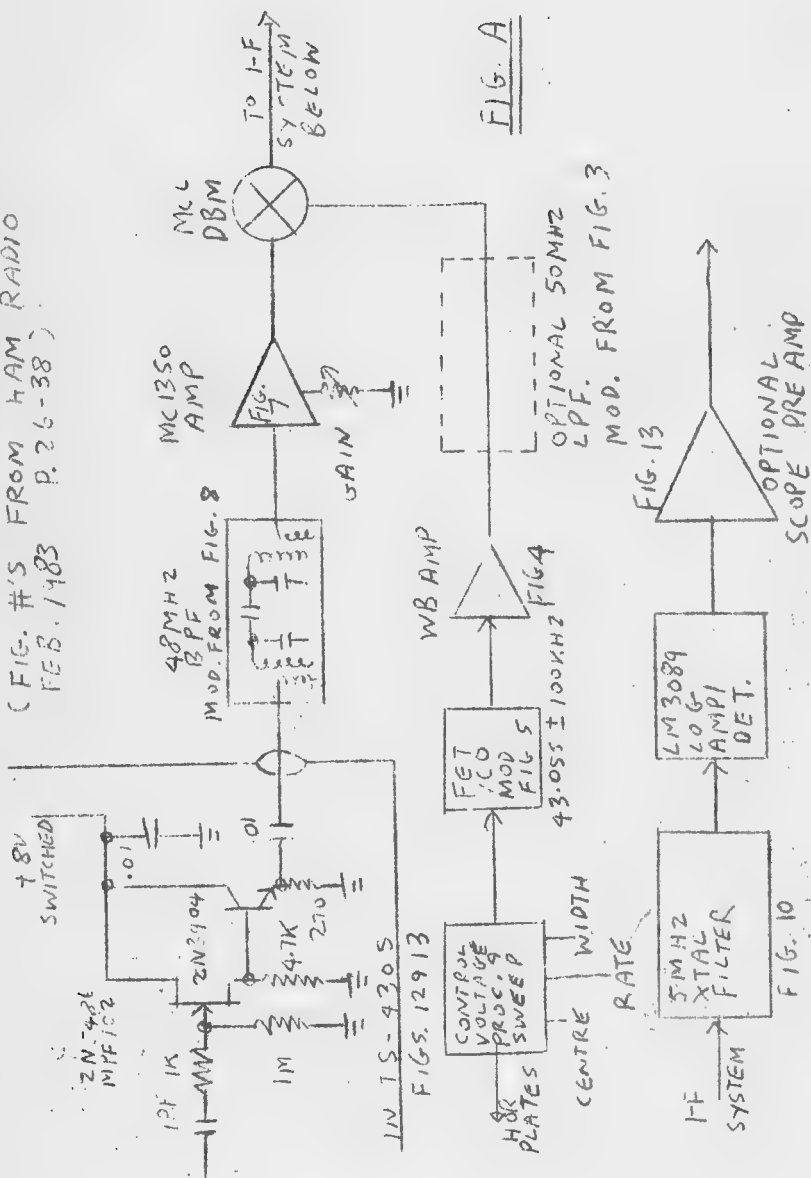 (FIG. #'S FROM HAM RADIO
FEB. 1983 P. 26-38)
+8V
SWITCHED
.01
2N3904
MPF102
1PF 1K
1M
4.7K
270
.01
IN TS-430S
48MHZ
BPF
MOD. FROM FIG. 8
MC1350
AMP
FIG.
7
GAIN
MCL
DBM
TO I-F
SYSTEM
BELOW
FIGS. 12 9 13
CONTROL
VOLTAGE
PROC. 9
SWEEP
HOR
PLATES
CENTRE
RATE
WIDTH
FET
VCO
MOD
FIG 5
43.055 ± 100KHZ
WB AMP
FIG 4
OPTIONAL 50MHZ
LPF.
MOD. FROM FIG. 3
FIG. A
I-F
SYSTEM
5MHZ
XTAL
FILTER
FIG. 10
LM3089
LOG
AMP/
DET.
FIG. 13
OPTIONAL
SCOPE PREAMP